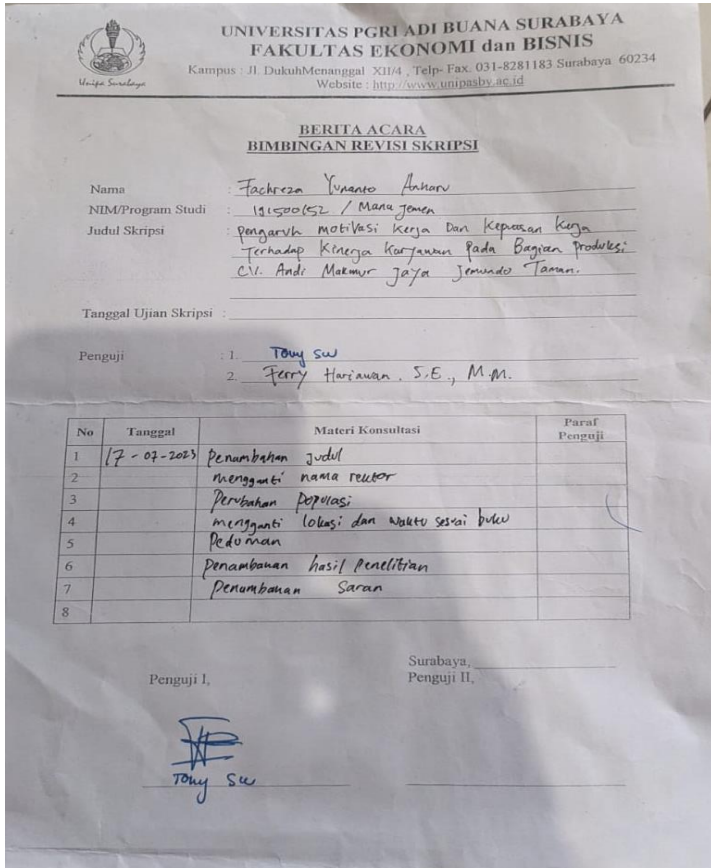 UNIVERSITAS PGRI ADI BUANA SURABAYA
FAKULTAS EKONOMI dan BISNIS
Kampus : Jl. DukuhMenanggal XII/4 , Telp- Fax. 031-8281183 Surabaya 60234
Website : http://www.unipasby.ac.id
Unipa Surabaya
BERITA ACARA
BIMBINGAN REVISI SKRIPSI
Nama : Fachreza Yunanto Anharu
NIM/Program Studi : 191500152 / Manajemen
Judul Skripsi : pengaruh motivasi Kerja Dan Kepuasan Kerja
Terhadap Kinerja Karyawan Pada Bagian produksi
CV. Andi Makmur Jaya Jemundo Taman.
Tanggal Ujian Skripsi :
Penguji : 1. Tony SW
2. Ferry Hariawan. S.E., M.M.
No Tanggal Materi Konsultasi Paraf Penguji
1 17-07-2023 Penambahan judul
2 mengganti nama rektor
3 Perubahan populasi
4 mengganti lokasi dan waktu sesuai buku
5 Pedoman
6 Penambahan hasil Penelitian
7 Penambahan Saran
8
Surabaya,
Penguji I, Penguji II,
Tony SW